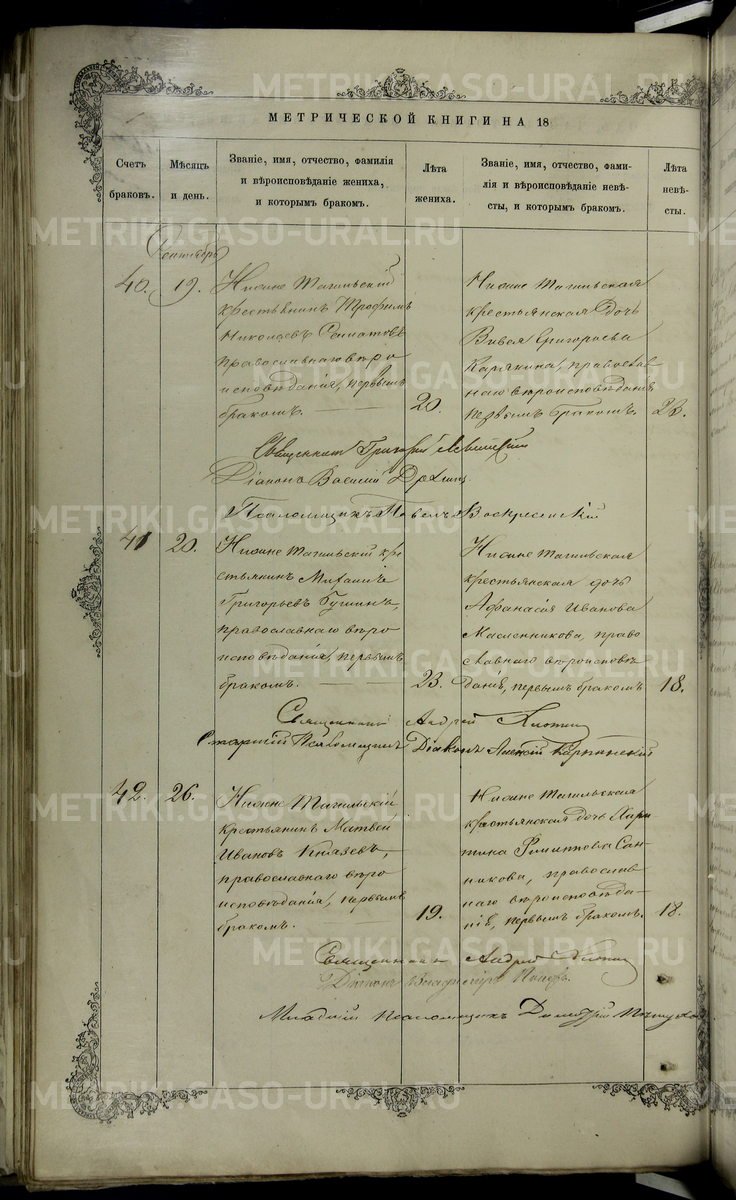 МЕТРИЧЕСКОЙ КНИГИ НА 18
Счетъ браковъ.
Мѣсяцъ и день.
Званіе, имя, отчество, фамилія и вѣроисповѣданіе жениха, и которымъ бракомъ.
Лѣта жениха.
Званіе, имя, отчество, фамилія и вѣроисповѣданіе невѣсты, и которымъ бракомъ.
Лѣта невѣсты.
Сентябрь
40. 19.
Нижне Тагильскій
крестьянинъ Трофимъ
православнаго вѣро
исповѣданія, первымъ
бракомъ.
20.
Нижне Тагильская
крестьянская дочь
Григорьева
Карякина, православ
наго вѣроисповѣданія
первымъ бракомъ.
22.
Священникъ Григорій Левитскій
Діаконъ Василій
Псаломщикъ Павелъ Воскресенскій
41 20.
Нижне Тагильскій кре
стьянинъ Михаилъ
Григорьевъ Гушинъ,
православнаго вѣро
исповѣданія, первымъ
бракомъ.
23.
Нижне Тагильская
крестьянская дочь
Афанасія Иванова
Масленникова, право
славнаго вѣроисповѣ
данія, первымъ бракомъ
18.
Священникъ Андрей
Старшій Псаломщикъ Діаконъ Алексій Карпинскій
42. 26.
Нижне Тагильскій
крестьянинъ Матвей
Ивановъ Князевъ,
православнаго вѣро
исповѣданія, первымъ
бракомъ.
19.
Нижне Тагильская
крестьянская дочь Хари
тина Филиппова Сан
никова, православ
наго вѣроисповѣда
нія, первымъ бракомъ.
18.
Священникъ Андрей
Діаконъ Владиміръ Поповъ.
Младшій Псаломщикъ Димитрій
METRIKI.GASO-URAL.RU